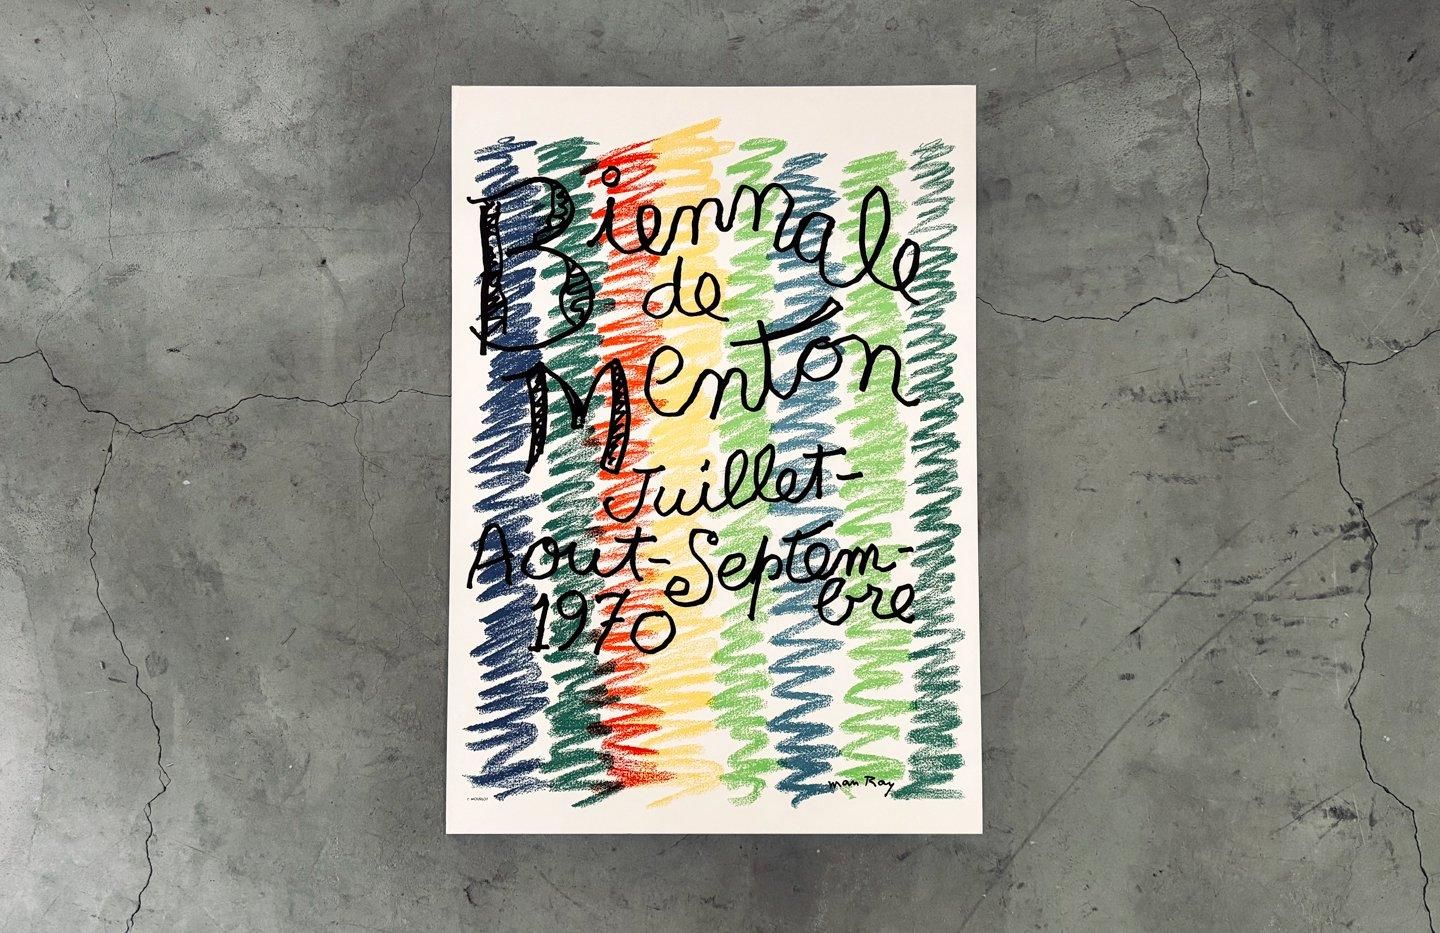 Biennale
de
Menton
Juillet-
Aout-Septem-
e bre
1970
man Ray